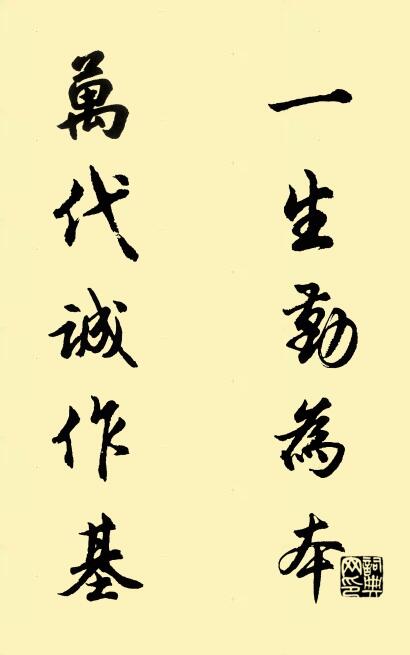 一生勤為本
萬代誠作基
詞典网印